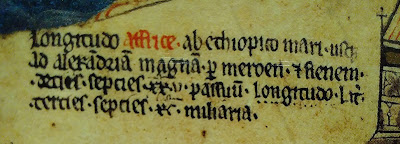 Longitudo Affrice · ab ethiopico mari · usq
ad alexādriā magnā · p meroen · ⁊ sienem ·
· decies · septies · xx · v · passuū · Longitudo
· tercies · septies · xc · miliaria ·